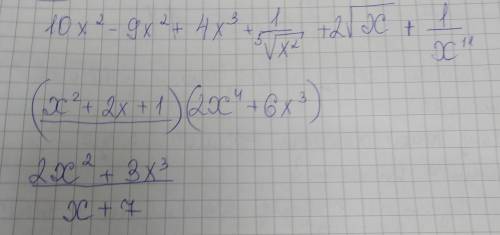 10x² - 9x² + 4x³ + 1/⁵√x² + 2√x + 1/x¹¹
(x² + 2x + 1)(2x⁴ + 6x³)
2x² + 3x³
x + 7